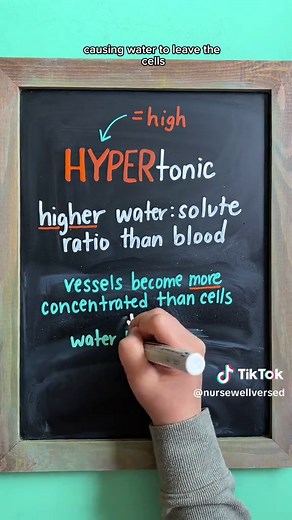 causing water to leave the
cells
= high
HYPERtonic
higher water:solute
ratio than blood
vessels become more
concentrated than cells
water
TikTok
@nursewellversed